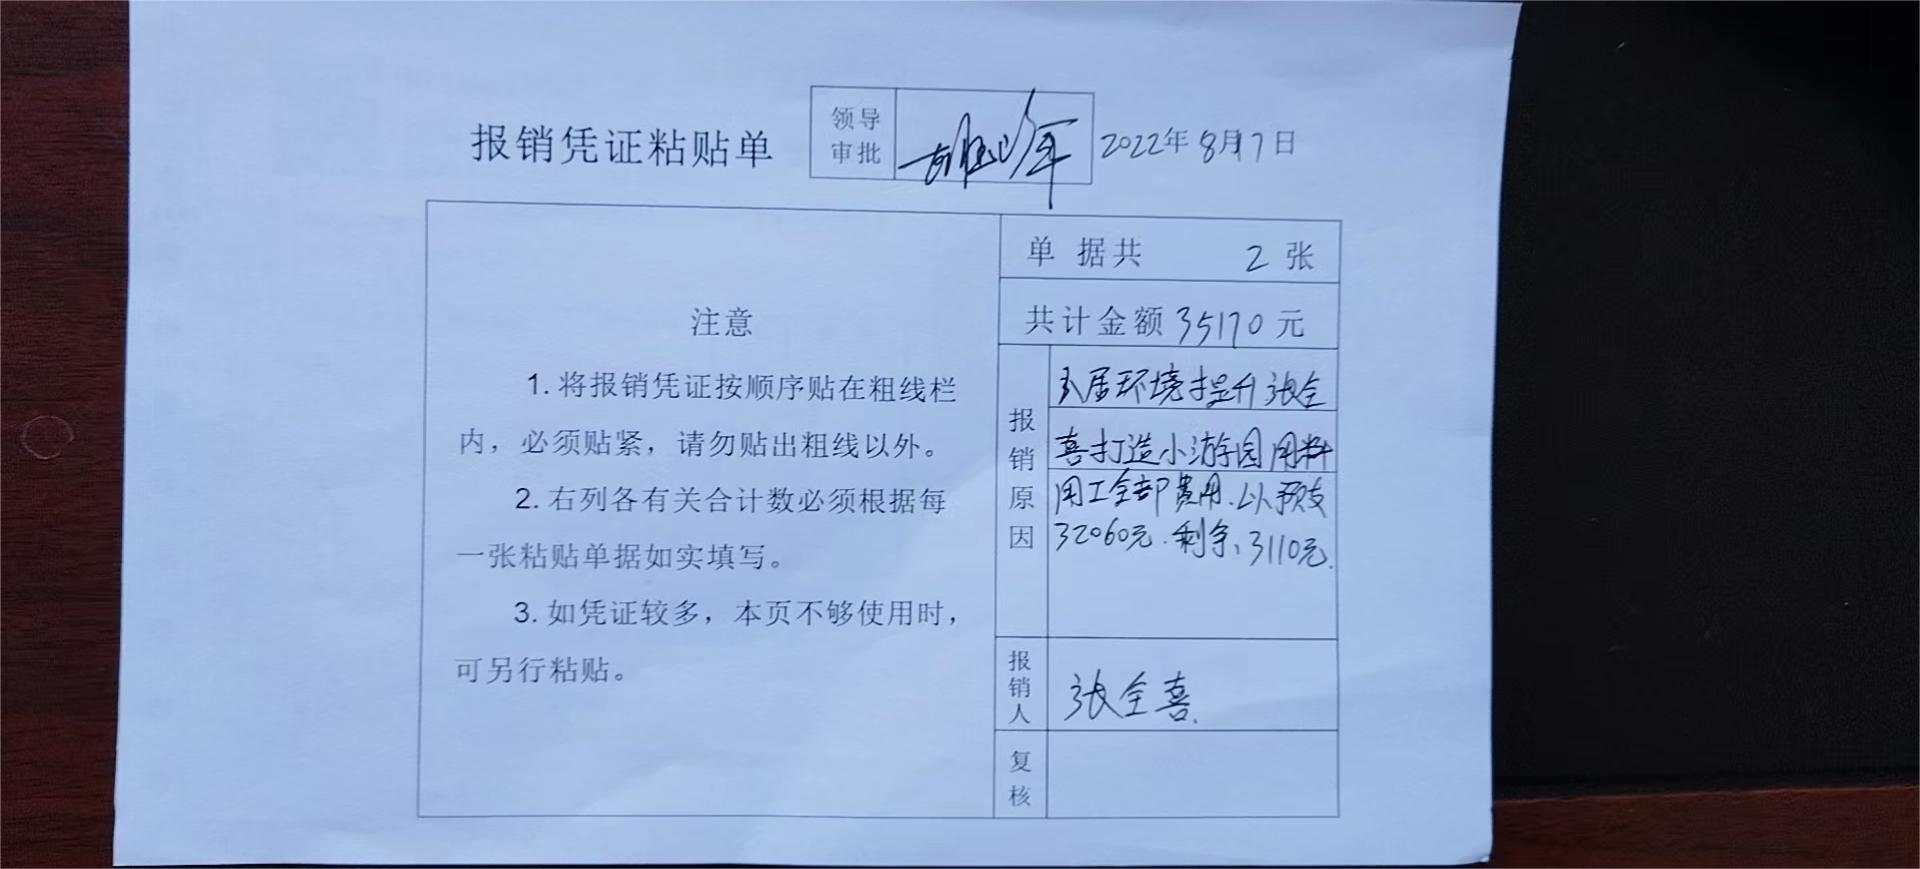 报销凭证粘贴单
领导
审批
2022年8月17日
单据共 2 张
共计金额 35170 元
注意
1. 将报销凭证按顺序贴在粗线栏
内，必须贴紧，请勿贴出粗线以外。
2. 右列各有关合计数必须根据每
一张粘贴单据如实填写。
3. 如凭证较多，本页不够使用时，
可另行粘贴。
报销原因
人居环境提升张全
喜打造小游园用料
用工全部费用.以预支
32060元.剩余、3110元.
报销人
张全喜.
复核